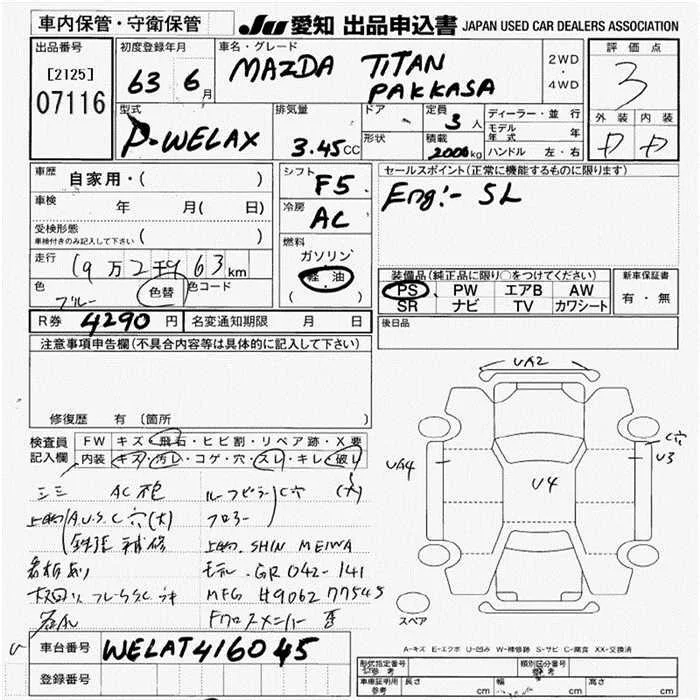 車内保管・守衛保管
JU 愛知 出品申込書 JAPAN USED CAR DEALERS ASSOCIATION
出品番号
[2125]
07116
初度登録年月
63 6月
車名・グレード
MAZDA TITAN
PAKKASA
2WD
・
4WD
評価点
3
外装 内装
D D
型式
P-WELAX
排気量
3.45CC
ドア
形状
定員
3人
積載
2000kg
ディーラー・並行
モデル年式 年
ハンドル 左・右
車歴
自家用・( )
車検
年 月( 日)
受検形態
車検付きのみ記入して下さい ( )
走行
19万2千963km
色
ブルー
色替
色コード
シフト
F5
冷房
AC
燃料
ガソリン
軽油
( )
セールスポイント(正常に機能するものに限ります)
Eng:- SL
装備品(純正品に限り○をつけてください)
PS PW エアB AW
SR ナビ TV カワシート
新車保証書
有・無
R券 4290円
名変通知期限 月 日
後日品
注意事項申告欄(不具合内容等は具体的に記入して下さい)
修復歴 有(箇所 )
検査員
記入欄
FW キズ・飛石・ヒビ割・リペア跡・X要
内装 キズ・汚レ・コゲ・穴・スレ・キレ・破レ
AC
A.U.S.C穴(大)
補修
C穴 (大)
フロアー
上物 SHIN MEIWA
モデル GR042-141
MFG 4906277545
UA2
UA4
U4
C穴
U3
スペア
A-キズ E-エクボ U-凹み W-補修跡 S-サビ C-腐食 XX-交換済
車台番号 WELAT416045
登録番号
形状指定番号
※参考
類別区分番号
※参考
車庫証明用
※参考
長さ cm
幅 cm
高さ cm